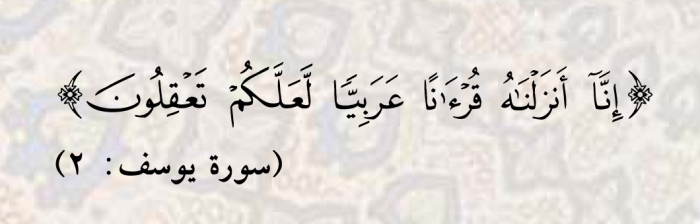 ﴿إِنَّآ أَنزَلۡنَٰهُ قُرۡءَٰنًا عَرَبِيّٗا لَّعَلَّكُمۡ تَعۡقِلُونَ﴾
(سورة يوسف: ٢)